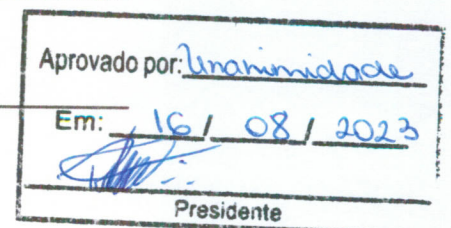 Aprovado por: Unanimidade
Em: 16 / 08 / 2023
Presidente